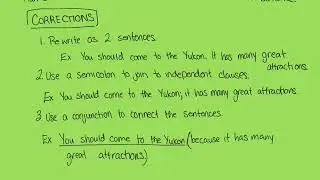 CORRECTIONS
1. Rewrite as 2 sentences.
Ex You should come to the Yukon. It has many great
attractions.
2 Use a semicolon to join to independent clauses.
Ex You should come to the Yukon; it has many great attractions.
3 Use a conjunction to connect the sentences.
Ex You should come to the Yukon (because it has many
great attractions)